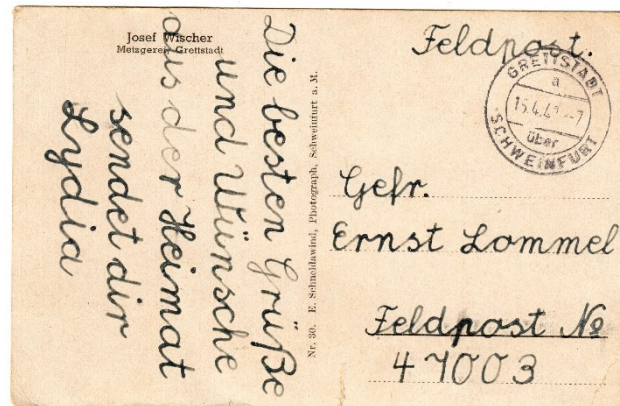 Josef Wischer
Metzgerei Grettstadt
Die besten Grüße
und Wünsche
aus der Heimat
sendet dir
Lydia
Nr. 30. E. Schneidawind, Photograph, Schweinfurt a. M.
Feldpost.
GRETTSTADT
a
über
SCHWEINFURT
Gefr.
Ernst Lommel
Feldpost No
47003